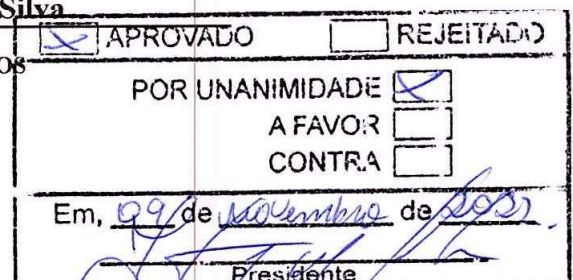 Silva
os
APROVADO REJEITADO
POR UNANIMIDADE
A FAVOR
CONTRA
Em, 09 de novembro de
Presidente